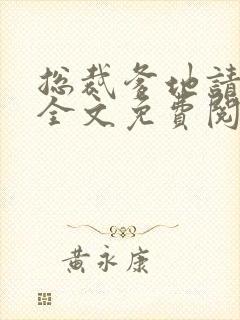 总裁爹地請
全文免費閱
黃永康